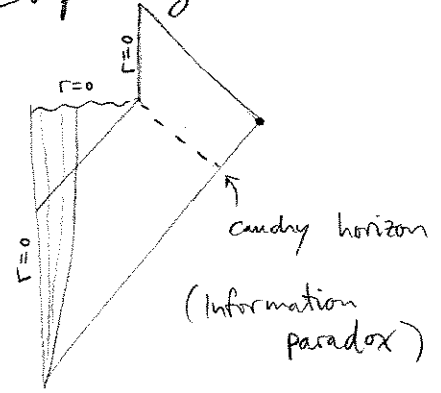 r=0
r=0
r=0
cauchy horizon
(Information
paradox)